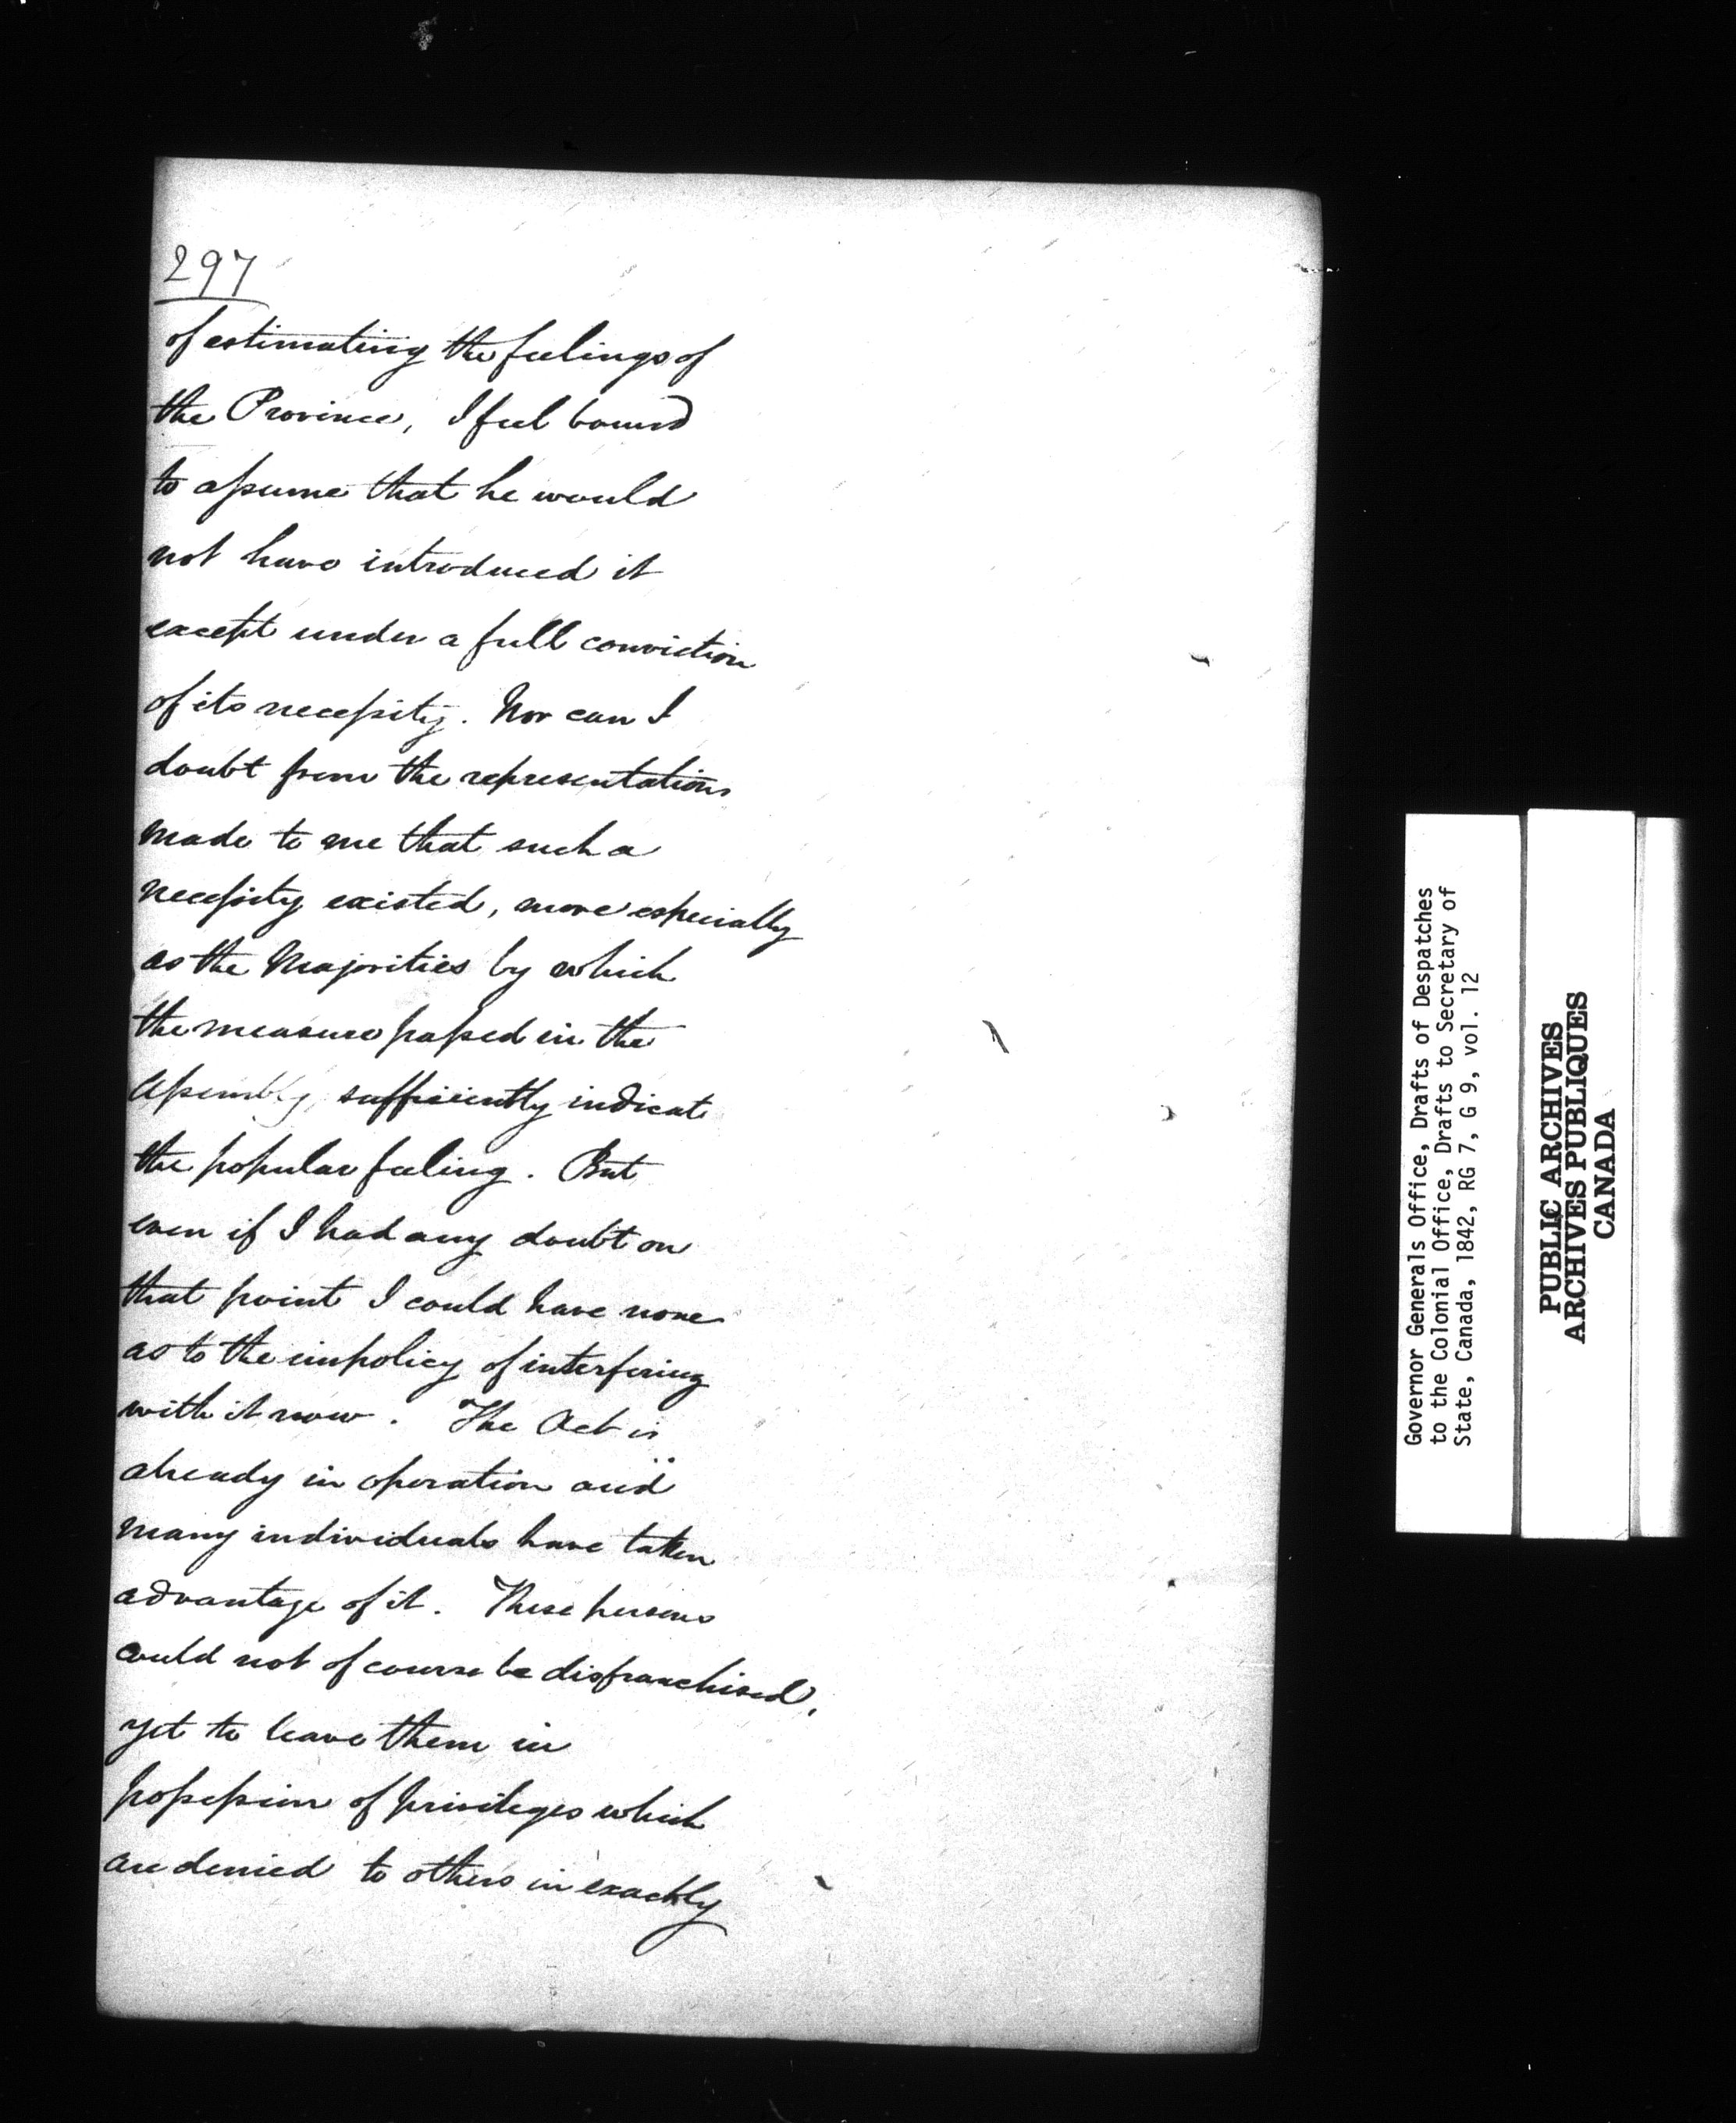 297
of estimating the feelings of
the Province, I feel bound
to assume that he would
not have introduced it
except under a full conviction
of its necessity. Nor can I
doubt from the representations
made to me that such a
necessity existed, more especially
as the Majorities by which
the measure passed in the
Assembly, sufficiently indicate
the popular feeling. But
even if I had any doubt on
that point I could have none
as to the impolicy of interfering
with it now. The Act is
already in operation and
many individuals have taken
advantage of it. These persons
could not of course be disfranchised,
yet to leave them in
possession of privileges which
are denied to others in exactly
Governor Generals Office, Drafts of Despatches
to the Colonial Office, Drafts to Secretary of
State, Canada, 1842, RG 7, G 9, vol. 12
PUBLIC ARCHIVES
ARCHIVES PUBLIQUES
CANADA